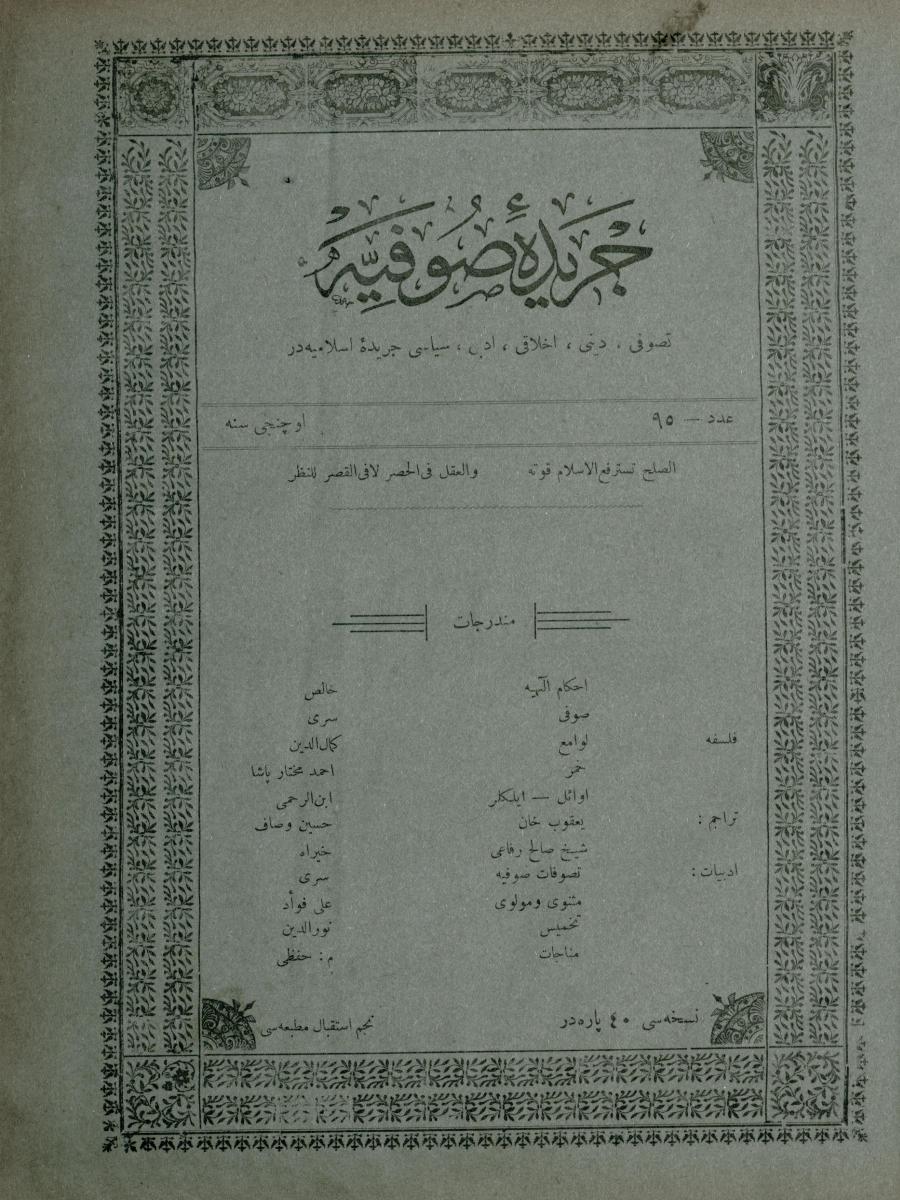 جریدهٔ صوفیه
تصوفی ، دینی ، اخلاقی ، ادبی ، سیاسی جریدهٔ اسلامیه‌در
عدد — ٩٥ اوچنجی سنه
الصلح تسترفع الاسلام قوته والعقل فی‌الحصر لافی‌القصر للنظر
مندرجات
احکام الٓهیه خالص
صوفی سری
فلسفه لوامع کمال‌الدین
خمر احمد مختار پاشا
اوائل — ایلکلر ابن‌الرحمی
تراجم : یعقوب خان حسین وصاف
شیخ صالح رفاعی خیراه
ادبیات : تصوفات صوفیه سری
مثنوی ومولوی علی فوأد
تخمیس نورالدین
مناجات م : حفظی
نسخه‌سی ٤٠ پاره‌در نجم استقبال مطبعه‌سی